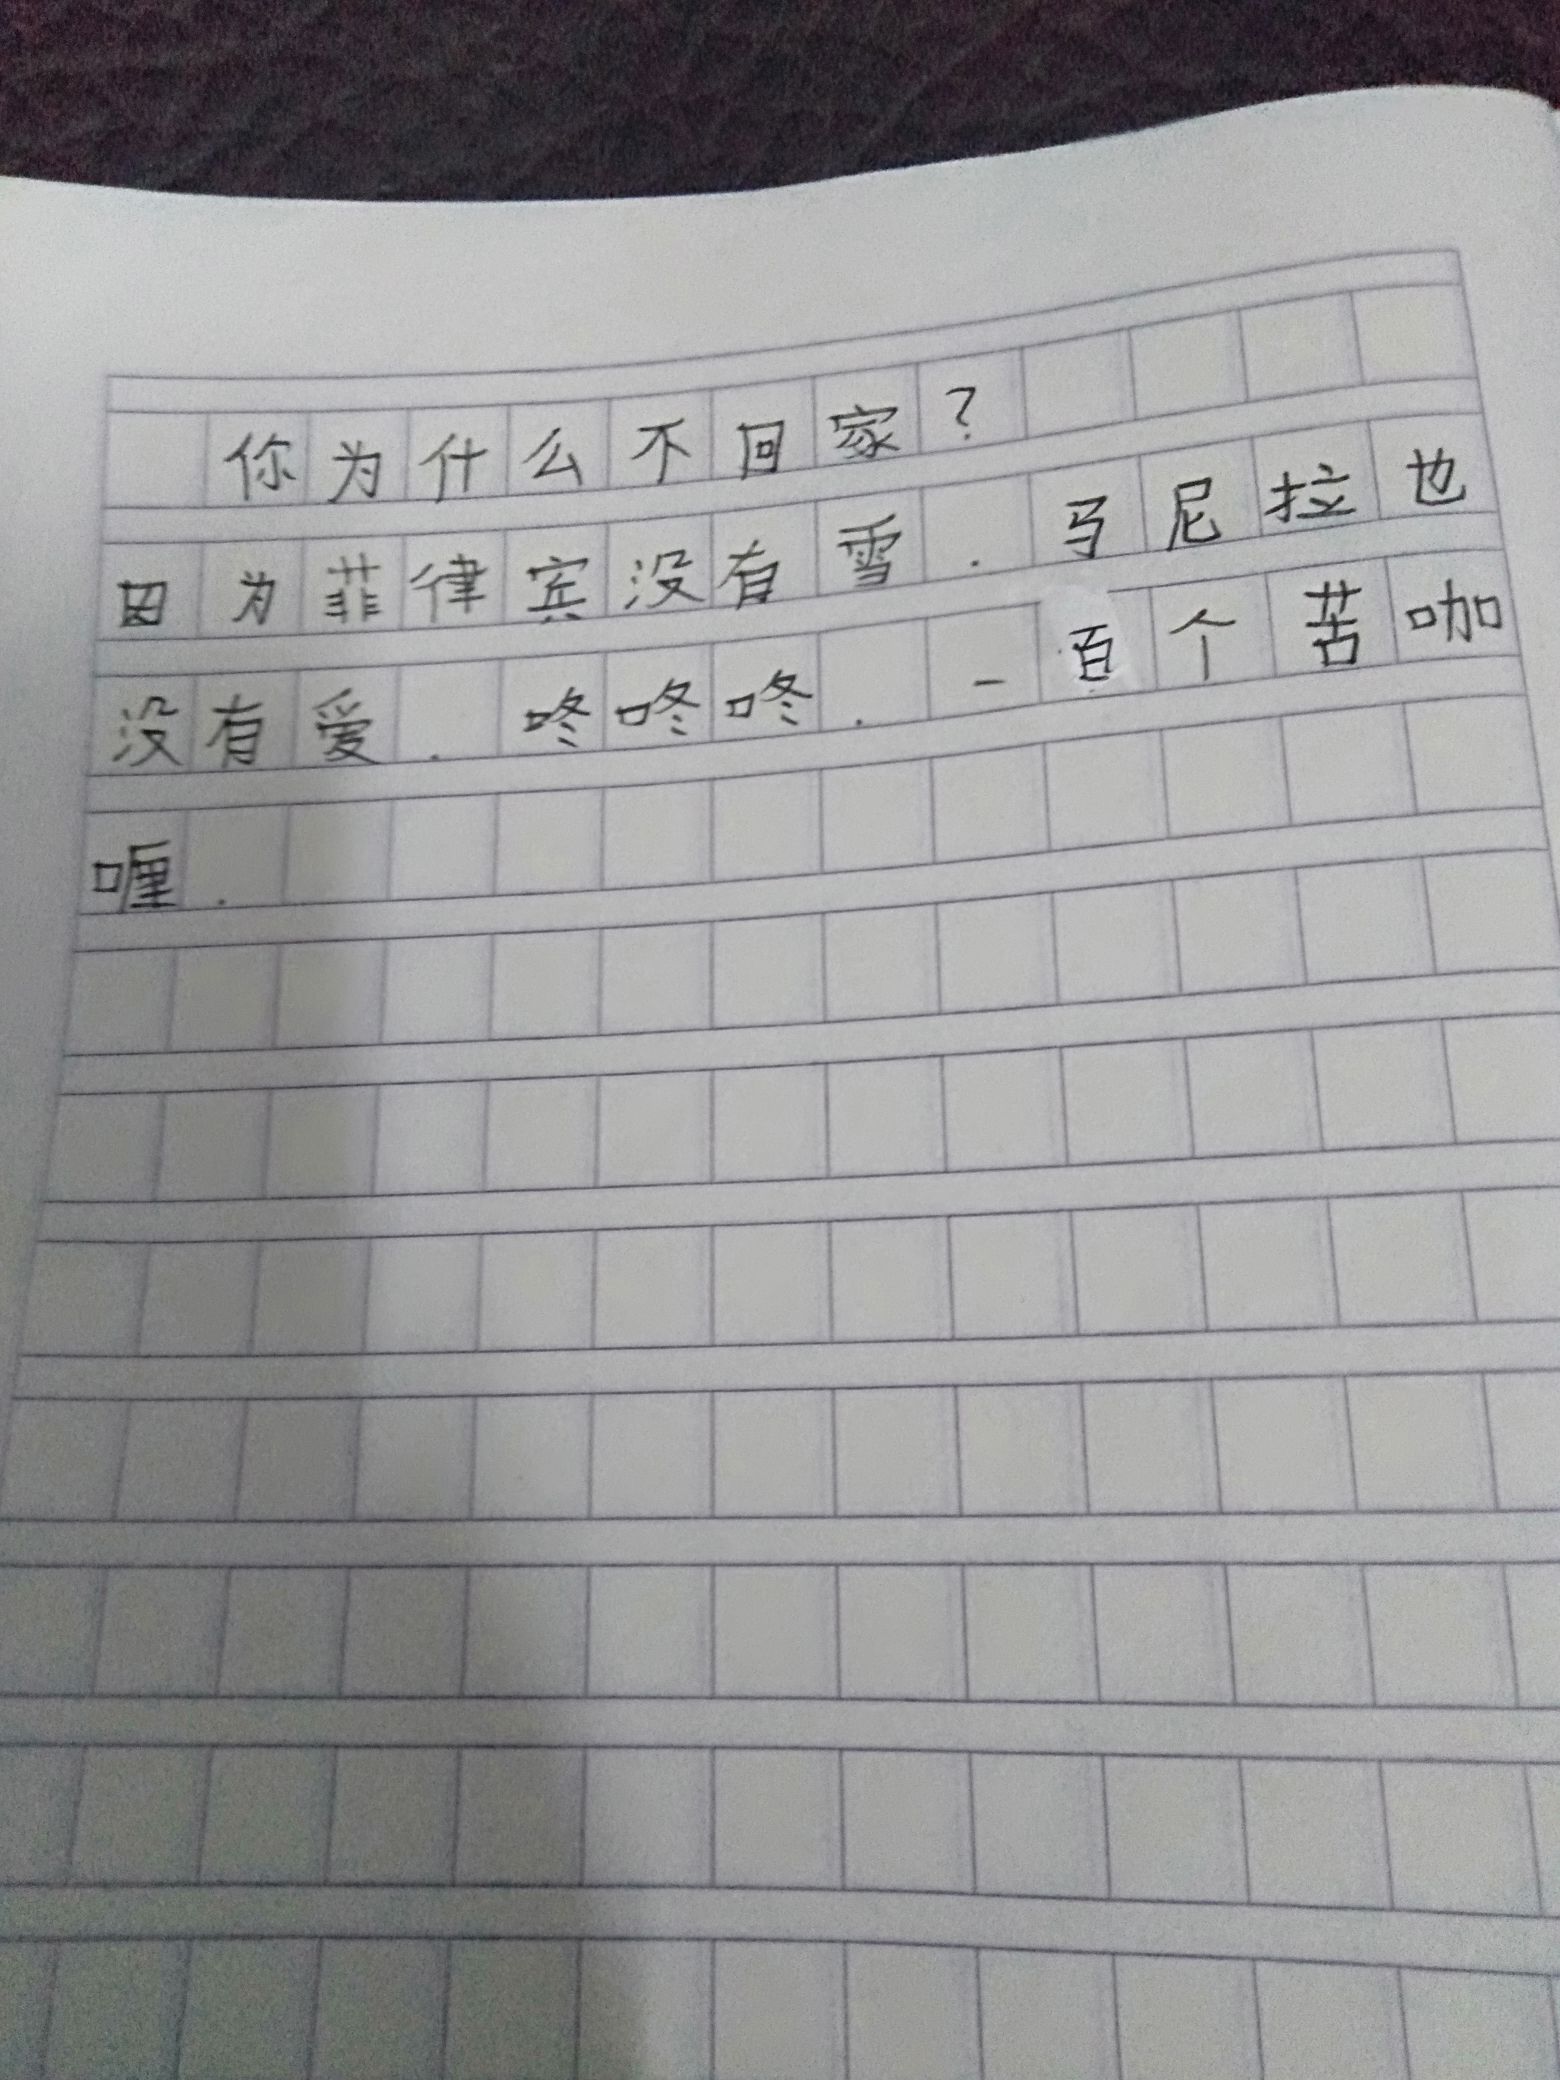 你为什么不回家?
因为菲律宾没有雪.马尼拉也
没有爱.咚咚咚.一百个苦咖
喱.